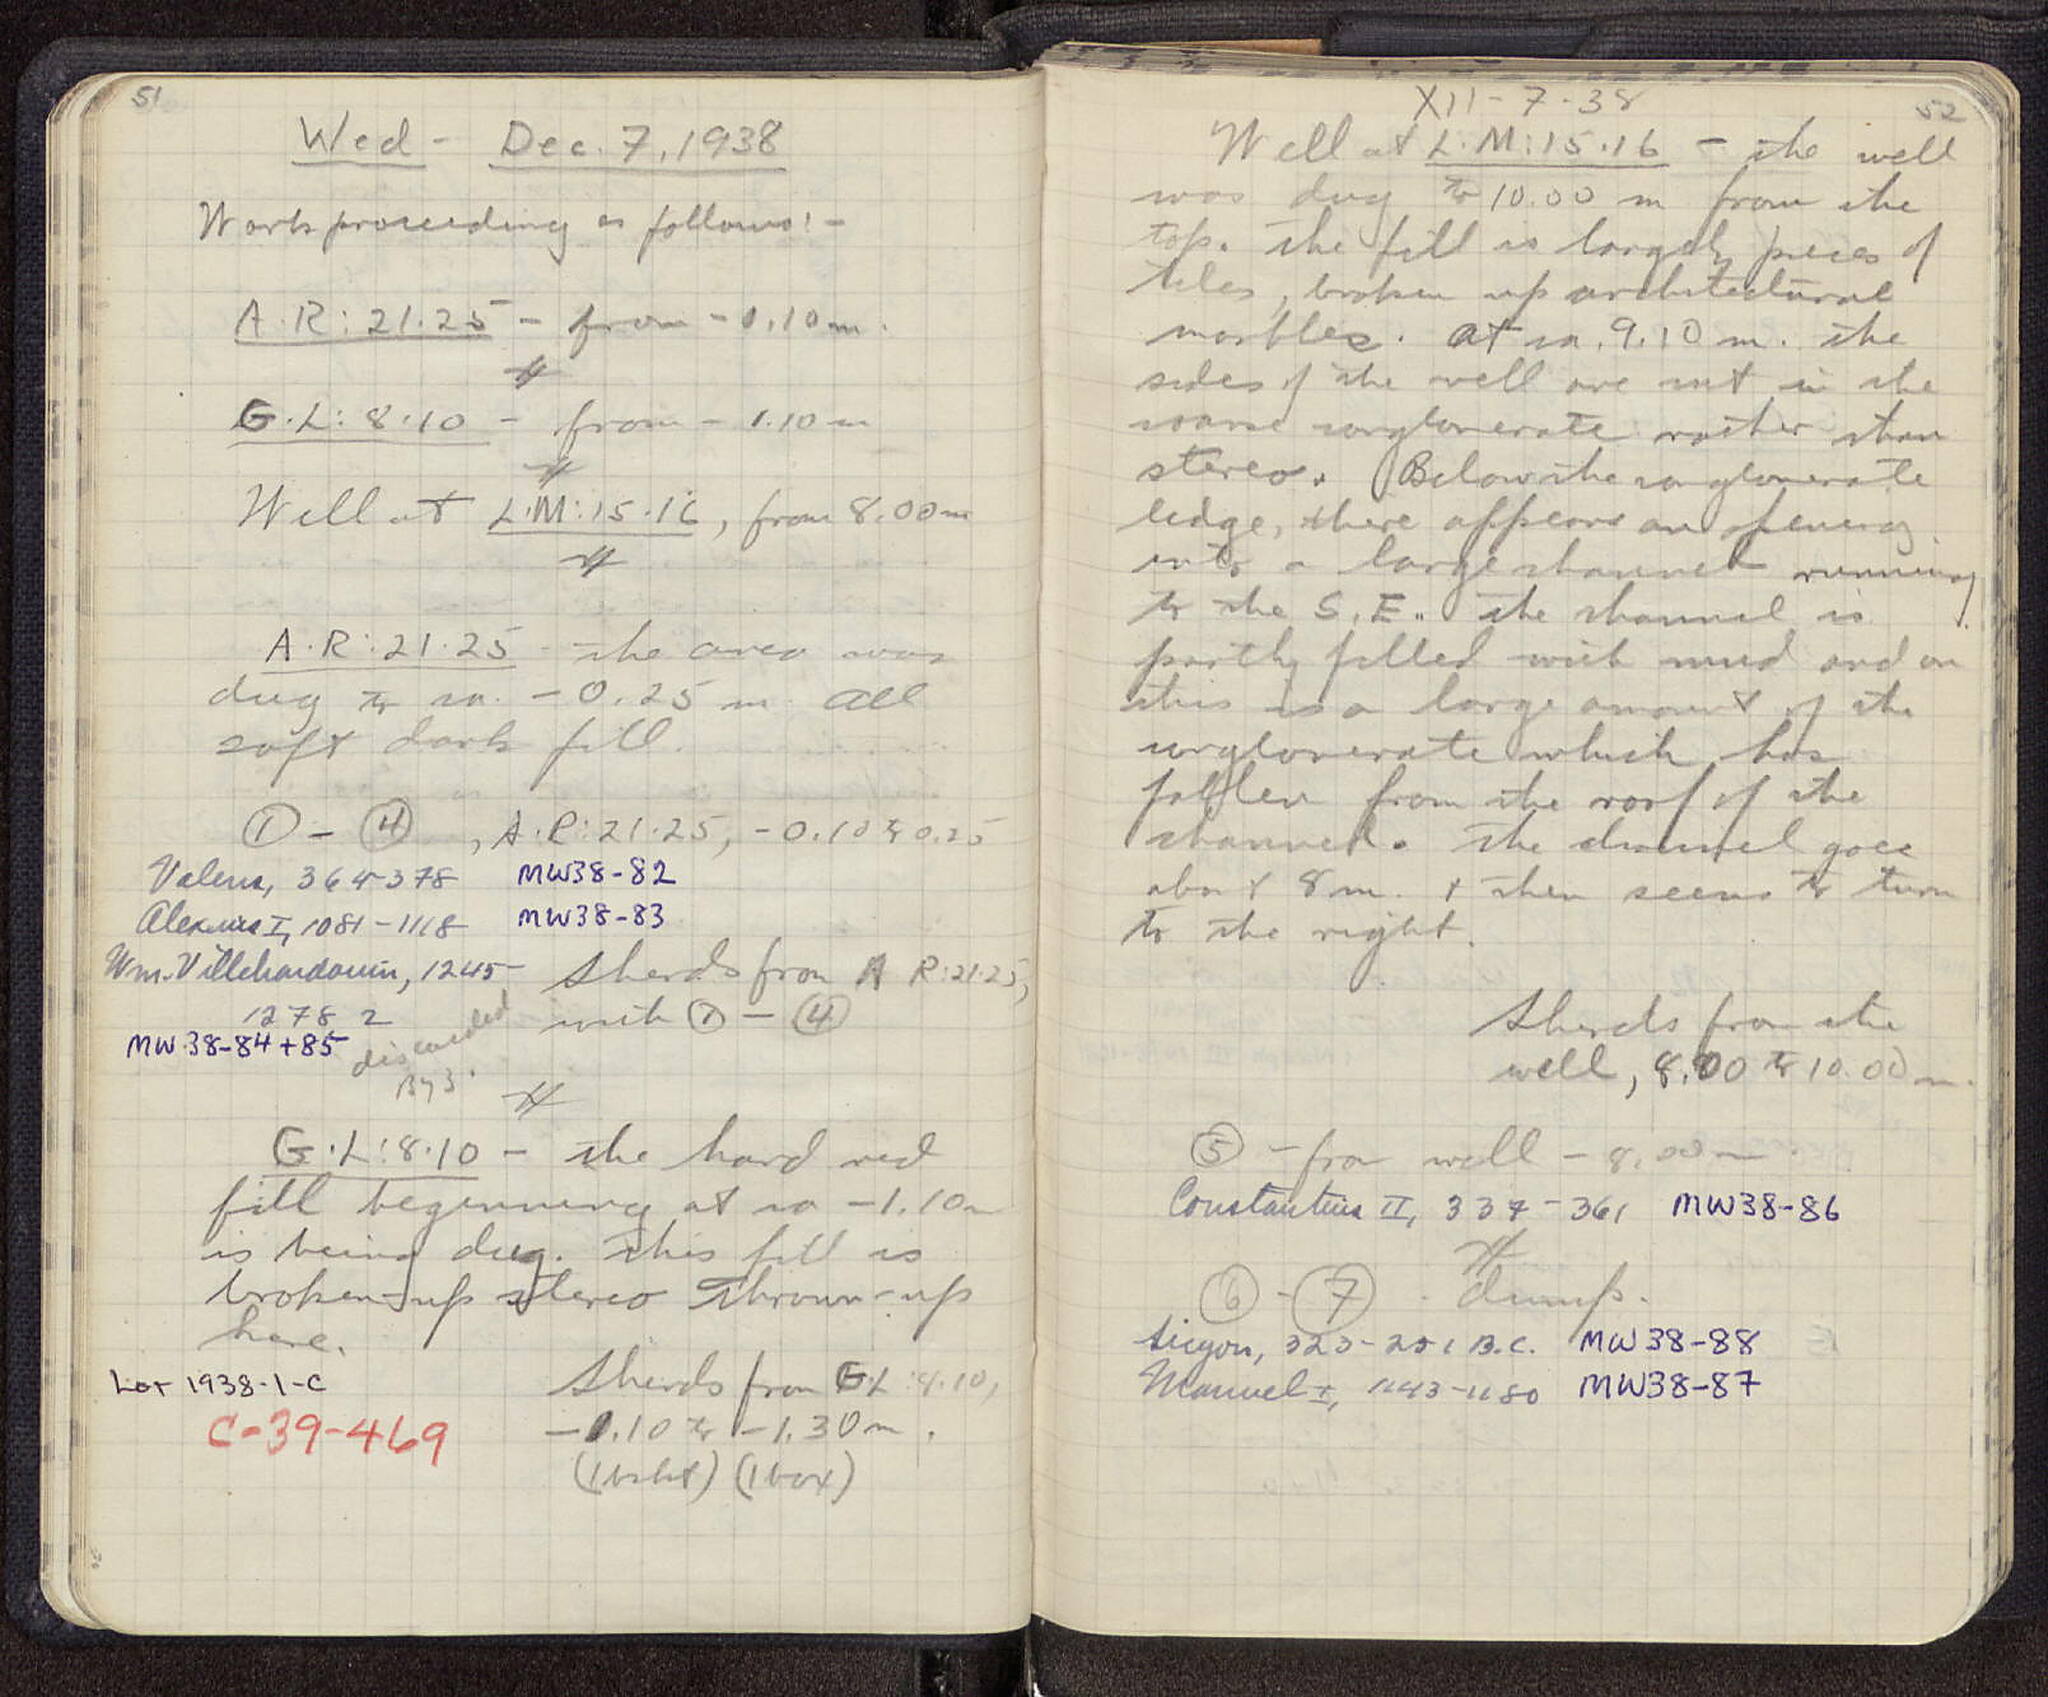 51
Wed - Dec. 7, 1938
Work proceeding as follows:-
A.R:21.25 - from -0.10 m.
G.L:8.10 - from - 1.10 m
Well at L.M:15.16, from 8.00 m
A.R:21.25 - the area was
dug to ca. -0.25 m. All
soft dark fill.
① - ④, A.R:21.25, -0.10 to 0.25
Valens, 364-378 MW38-82
Alexius I, 1081-1118 MW38-83
Wm. Villehardouin, 1245-
1278 2
MW 38-84+85
Sherds from A R:21.25,
with ① - ④
discarded
G.L:8.10 - the hard red
fill beginning at ca -1.10 m
is being dug. This fill is
broken-up stereo thrown-up
here.
Lot 1938-1-C
C-39-469
Sherds from G.L:8.10,
-1.10 to -1.30 m.
(1 bskt) (1 box)
XII-7-38
52
Well at L.M:15.16 - the well
was dug to 10.00 m from the
top. The fill is largely pieces of
tiles, broken up architectural
marbles. At ca. 9.10 m. the
sides of the well are cut in the
coarse conglomerate rather than
stereo. Below the conglomerate
ledge, there appears an opening
into a large channel running
to the S.E. The channel is
partly filled with mud and on
this is a large amount of the
conglomerate which has
fallen from the roof of the
channel. The channel goes
about 8 m. + then seems to turn
to the right.
Sherds from the
well, 8.00 to 10.00 m.
⑤ - from well - 8.00 m.
Constantius II, 337-361 MW38-86
⑥ - ⑦ . dump.
Sicyon, 323-251 B.C. MW38-88
Manuel I, 1143-1180 MW38-87